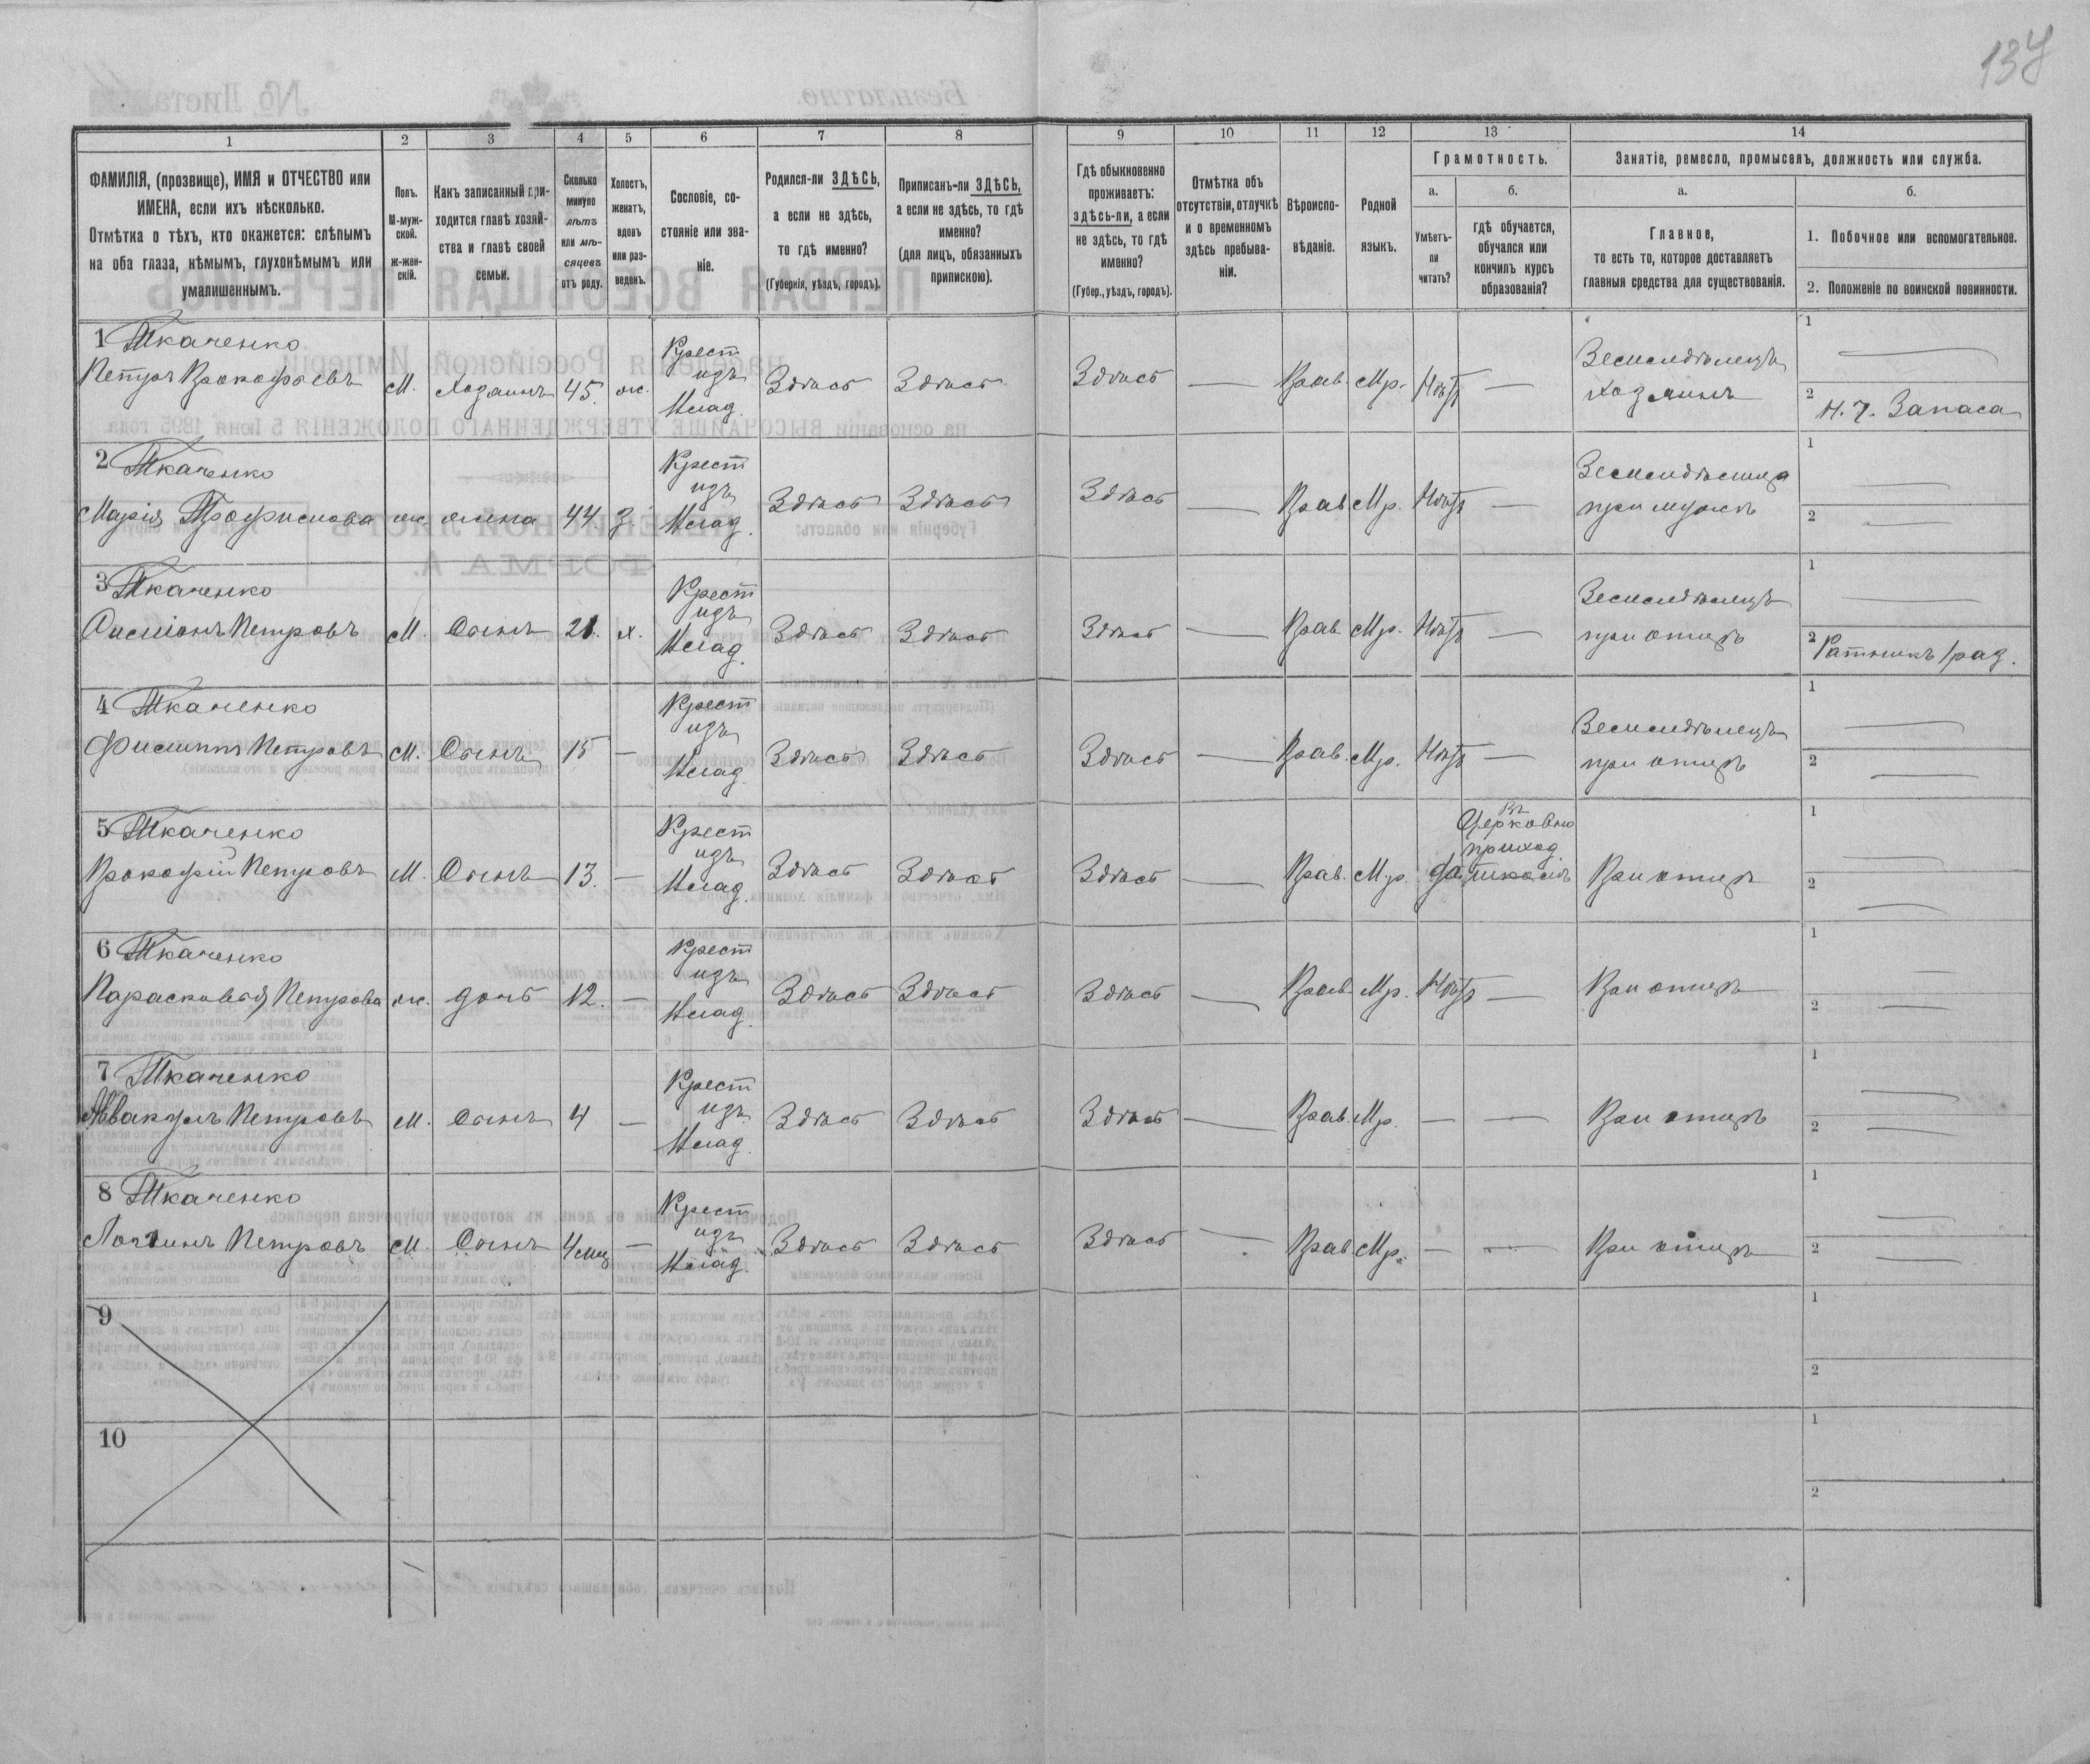 137
1 2 3 4 5 6 7 8 9 10 11 12 13 14
ФАМИЛІЯ, (прозвище), ИМЯ и ОТЧЕСТВО или
ИМЕНА, если ихъ нѣсколько.
Отмѣтка о тѣхъ, кто окажется: слѣпымъ
на оба глаза, нѣмымъ, глухонѣмымъ или
умалишеннымъ.
Полъ.
М-муж-
ской.
ж-жен-
скій.
Какъ записанный при-
ходится главѣ хозяй-
ства и главѣ своей
семьи.
Сколько
минуло
лѣтъ
или мѣ-
сяцевъ
отъ роду.
Холостъ,
женатъ,
вдовъ
или раз-
веденъ.
Сословіе, со-
стояніе или зва-
ніе.
Родился-ли ЗДѢСЬ,
а если не здѣсь,
то гдѣ именно?
(Губернія, уѣздъ, городъ).
Приписанъ-ли ЗДѢСЬ,
а если не здѣсь, то гдѣ
именно?
(для лицъ, обязанныхъ
припискою).
Гдѣ обыкновенно
проживаетъ:
здѣсь-ли, а если
не здѣсь, то гдѣ
именно?
(Губер., уѣздъ, городъ).
Отмѣтка объ
отсутствіи, отлучкѣ
и о временномъ
здѣсь пребыва-
ніи.
Вѣроиспо-
вѣданіе.
Родной
языкъ.
Грамотность.
а. б.
Умѣетъ-
ли
читать?
гдѣ обучается,
обучался или
кончилъ курсъ
образованія?
Занятіе, ремесло, промыселъ, должность или служба.
а. б.
Главное,
то есть то, которое доставляетъ
главныя средства для существованія.
1. Побочное или вспомогательное.
2. Положеніе по воинской повинности.
1 Ткаченко
Петръ Прокофьевъ м. Хозяинъ 45. ж. Крест изъ Здѣсь Здѣсь Здѣсь — Прав. Мр. Нѣтъ — Земледѣлецъ
хозяинъ
1 —
2 Н. ч. Запаса
2 Ткаченко
Марія Трофимова ж. жена 44 з. Крест изъ Здѣсь Здѣсь Здѣсь — Прав. Мр. Нѣтъ —
при мужѣ
1 —
2 —
3 Ткаченко
Петровъ м. Сынъ 21. х. Крест изъ Здѣсь Здѣсь Здѣсь — Прав. Мр. Нѣтъ — Земледѣлецъ
при отцѣ
1 —
2 Ратникъ 1 раз.
4 Ткаченко
Филиппъ Петровъ м. Сынъ 15 — Крест изъ Здѣсь Здѣсь Здѣсь — Прав. Мр. Нѣтъ — Земледѣлецъ
при отцѣ
1 —
2 —
5 Ткаченко
Прокофій Петровъ м. Сынъ 13. — Крест изъ Здѣсь Здѣсь Здѣсь — Прав. Мр. да въ
Церковно
приход.
школѣ При отцѣ
1 —
2 —
6 Ткаченко
Парасковья Петрова ж. дочь 12. — Крест изъ Здѣсь Здѣсь Здѣсь — Прав. Мр. Нѣтъ — При отцѣ
1 —
2 —
7 Ткаченко
Аввакумъ Петровъ м. Сынъ 4 — Крест изъ Здѣсь Здѣсь Здѣсь — Прав. Мр. — — При отцѣ
1 —
2 —
8 Ткаченко
Логинъ Петровъ м. Сынъ 4 мѣс — Крест изъ Здѣсь Здѣсь Здѣсь — Прав. Мр. — — При отцѣ
1 —
2 —
9
1
2
10
1
2